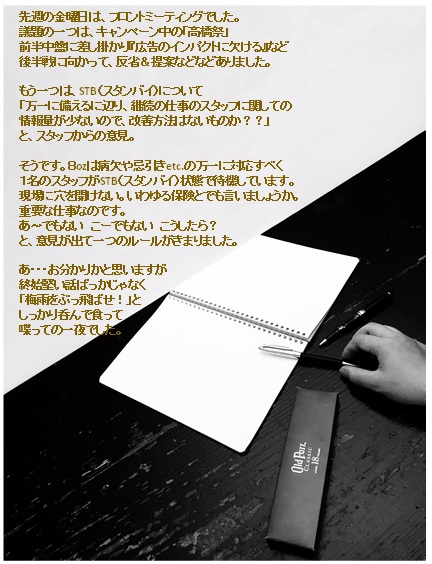 先週の金曜日は、フロントミーティングでした。
議題の一つは、キャンペーン中の「高橋祭」
前半中盤に差し掛かり『広告のインパクトに欠ける』など
後半戦に向かって、反省＆提案などなどありました。
もう一つは、STB（スタンバイ）について
「万一に備えるに辺り、継続の仕事のスタッフに関しての
情報量が少ないので、改善方法はないものか？？」
と、スタッフからの意見。
そうです。8ozは病欠や忌引きetc.の万一に対応すべく
１名のスタッフがSTB（スタンバイ）状態で待機しています。
現場に穴を開けない。いわゆる保険とでも言いましょうか。
重要な仕事なのです。
あ～でもない　こーでもない　こうしたら？
と、意見が出て一つのルールがきまりました。
あ・・・お分かりかと思いますが
終始堅い話ばっかじゃなく
「梅雨をぶっ飛ばせ！」と
しっかり呑んで食って
喋っての一夜でした。
Old Parr
CLASSIC
18